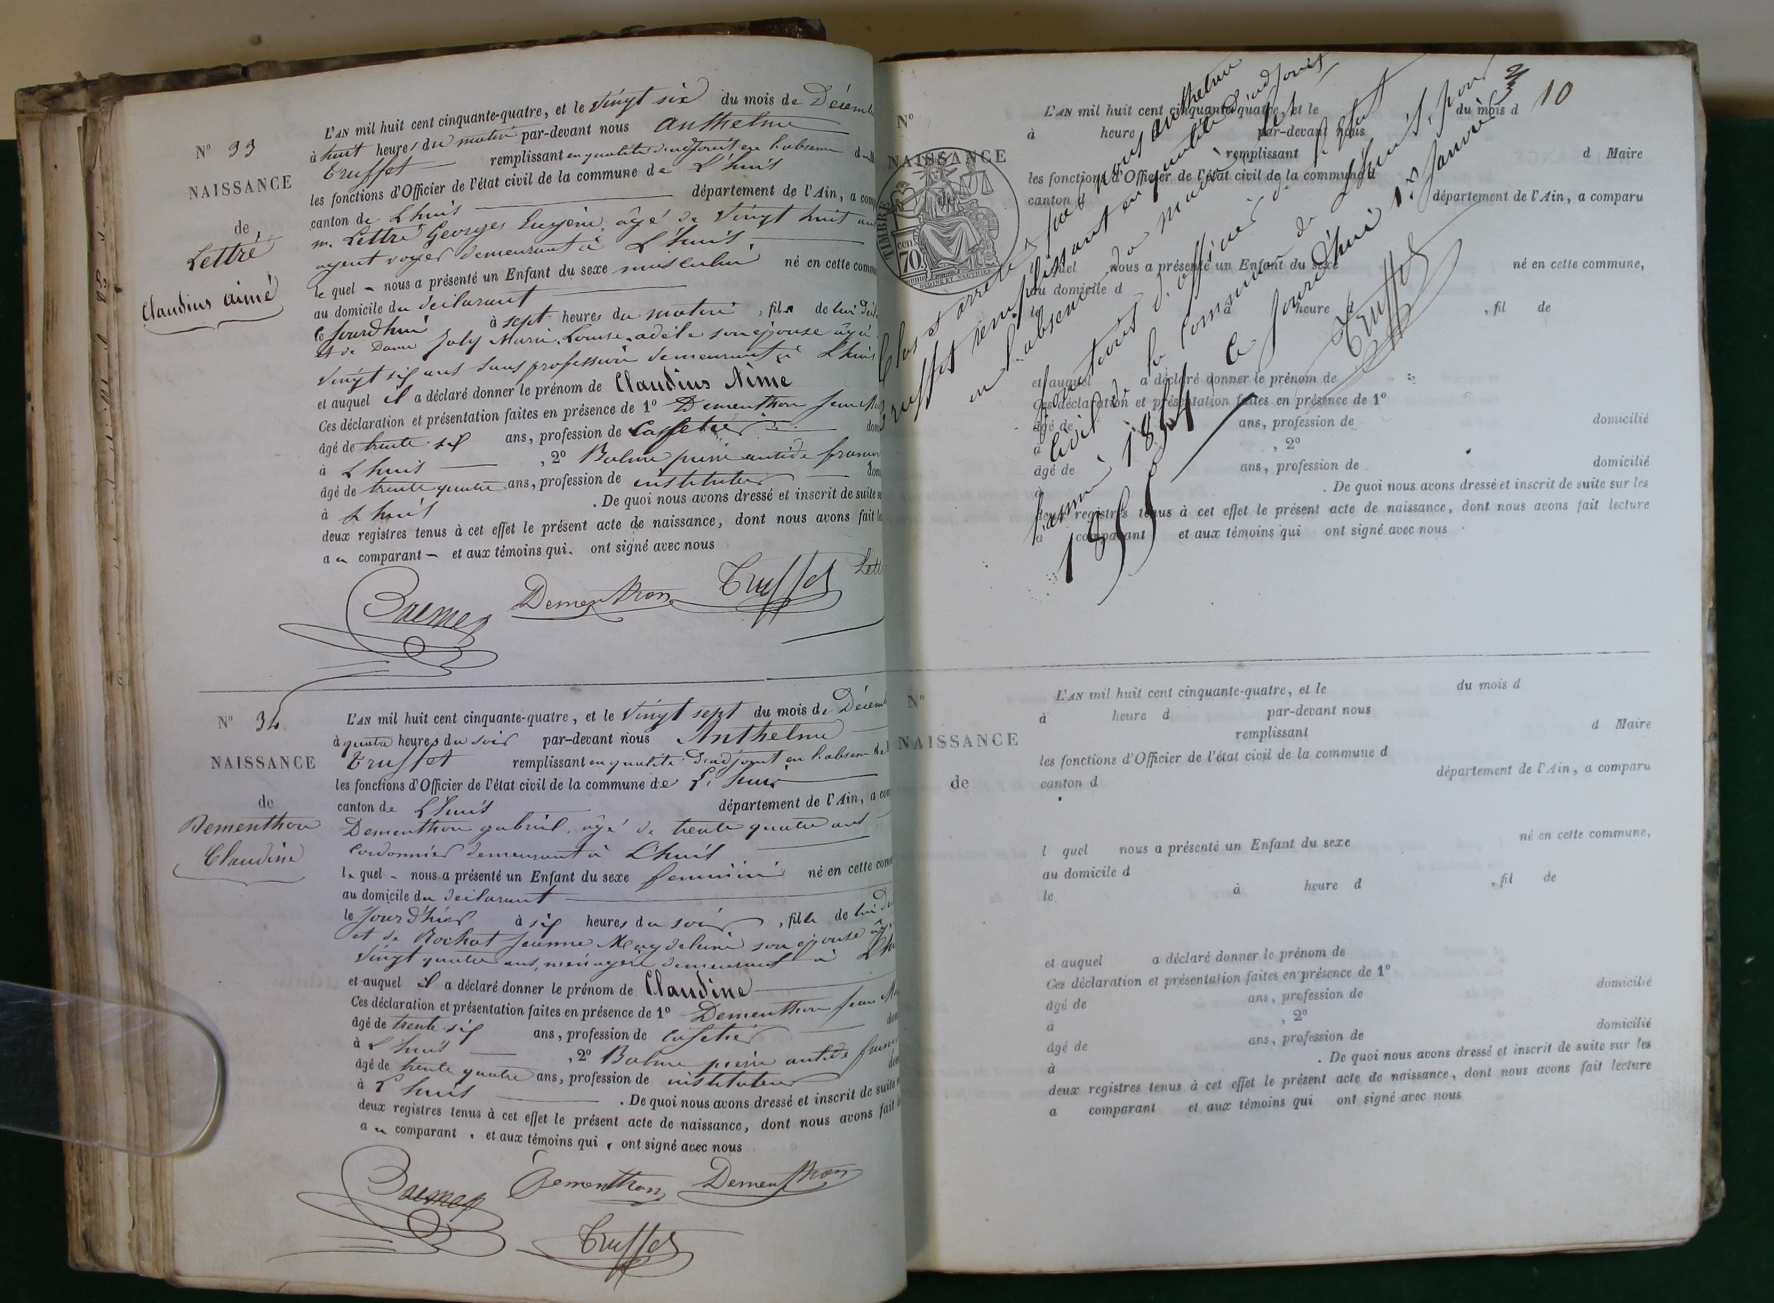 N° 33
NAISSANCE
de
Lettré
Claudius aimé
L'AN mil huit cent cinquante-quatre, et le vingt six du mois de Décemb
à huit heures du matin par-devant nous Anthelme
Truffet remplissant en qualité d'adjoint en l'absence d
les fonctions d'Officier de l'état civil de la commune de L'huis
canton de L'huis département de l'Ain, a com
m. Lettré Georges Eugène, âgé de vingt huit ans
agent voyer demeurant à L'huis
le quel nous a présenté un Enfant du sexe masculin né en cette comm
au domicile du déclarant
le jourdhui à sept heures du matin, fils de lui décl
et de Dame Joly Marie Louise adèle son épouse âgée
vingt six ans sans profession demeurant à L'huis
et auquel il a déclaré donner le prénom de Claudius Aimé
Ces déclaration et présentation faites en présence de 1° Dementhon Jean M
âgé de trente six ans, profession de Caffetier dom
à L'huis , 2° Balme pierre antide franc
âgé de trente quatre ans, profession de instituteur dom
à L'huis . De quoi nous avons dressé et inscrit de suite s
deux registres tenus à cet effet le présent acte de naissance, dont nous avons fait le
au comparant et aux témoins qui ont signé avec nous
Balme Dementhon Truffet Lett
N° 34
NAISSANCE
de
Dementhon
Claudine
L'AN mil huit cent cinquante-quatre, et le vingt sept du mois de Décem
à quatre heures du soir par-devant nous Anthelme
Truffet remplissant en qualité d'adjoint en l'absence de
les fonctions d'Officier de l'état civil de la commune de L'huis
canton de L'huis département de l'Ain, a com
Dementhon gabriel, âgé de trente quatre ans
Cordonnier demeurant à L'huis
le quel nous a présenté un Enfant du sexe feminin né en cette com
au domicile du déclarant
le jour d'hier à six heures du soir, fille de lui dé
et de Rochat Jeanne Magdeleine son épouse âg
vingt quatre ans, ménagère demeurant à L'hu
et auquel il a déclaré donner le prénom de Claudine
Ces déclaration et présentation faites en présence de 1° Dementhon Jean Ma
âgé de trente six ans, profession de Cafetier dom
à L'huis , 2° Balme pierre antide franc
âgé de trente quatre ans, profession de instituteur dom
à L'huis . De quoi nous avons dressé et inscrit de suite s
deux registres tenus à cet effet le présent acte de naissance, dont nous avons fait le
au comparant, et aux témoins qui, ont signé avec nous
Balme Dementhon Dementhon
Truffet
10
N°
NAISSANCE
de
TIMBRE
70
L'AN mil huit cent cinquante-quatre, et le du mois d
à heure par-devant nous
remplissant d Maire
les fonctions d'Officier de l'état civil de la commune d
canton d département de l'Ain, a comparu
quel nous a présenté un Enfant du sexe né en cette commune,
au domicile d
le à heure , fil de
et auquel a déclaré donner le prénom de
Ces déclaration et présentation faites en présence de 1°
âgé de ans, profession de domicilié
à , 2°
âgé de ans, profession de domicilié
. De quoi nous avons dressé et inscrit de suite sur les
deux registres tenus à cet effet le présent acte de naissance, dont nous avons fait lecture
a comparant et aux témoins qui ont signé avec nous
Clos et arrêté par nous anthelme
truffet remplissant en qualité d'adjoint
en l'absence du maire les
fonctions d'officier de l'état
Civil de la commune de Lhuis, pour
l'année 1854 Ce Jourd'hui 1er Janvier
1855
Truffet
N°
NAISSANCE
de
L'AN mil huit cent cinquante-quatre, et le du mois d
à heure d par-devant nous
remplissant d Maire
les fonctions d'Officier de l'état civil de la commune d
canton d département de l'Ain, a comparu
l quel nous a présenté un Enfant du sexe né en cette commune,
au domicile d
le à heure d , fil de
et auquel a déclaré donner le prénom de
Ces déclaration et présentation faites en présence de 1°
âgé de ans, profession de domicilié
à , 2°
âgé de ans, profession de domicilié
à . De quoi nous avons dressé et inscrit de suite sur les
deux registres tenus à cet effet le présent acte de naissance, dont nous avons fait lecture
a comparant et aux témoins qui ont signé avec nous